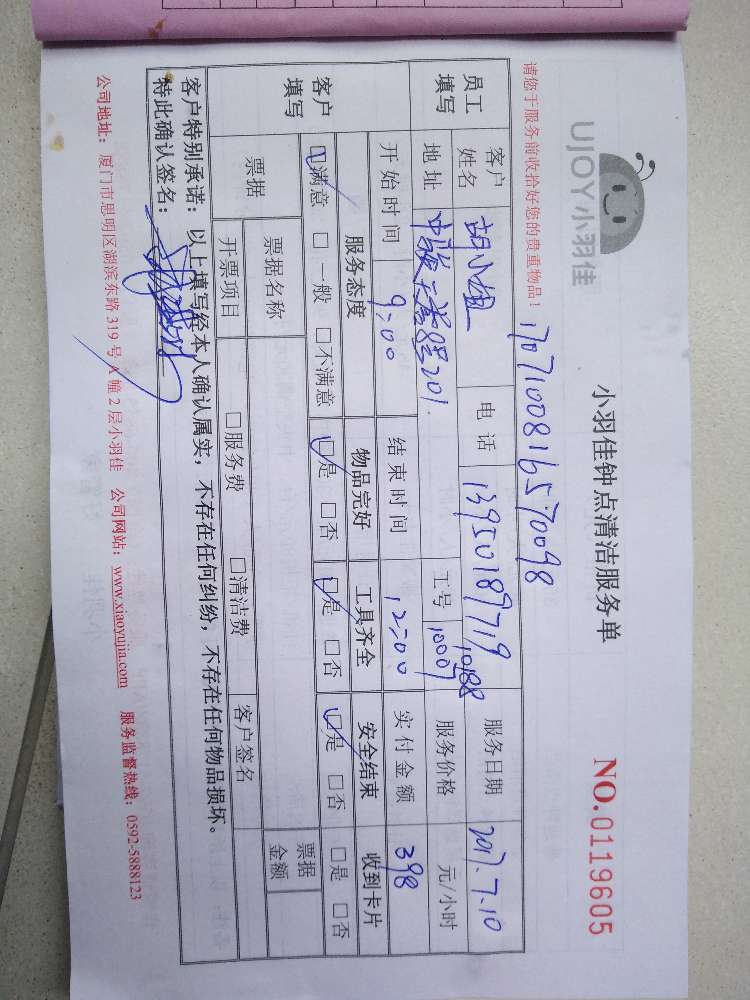 UJOY小羽佳
小羽佳钟点清洁服务单
NO.0119605
请您于服务前收拾好您的贵重物品！
1707100816570098
员工填写 客户姓名 胡小姐 电话 13950189719 服务日期 2017.7.10
地址 201. 工号 10007 10188 服务价格 元/小时
开始时间 9:00 结束时间 12:00 实付金额 398
客户填写 服务态度 物品完好 工具齐全 安全结束 收到卡片
☑满意 □一般 □不满意 ☑是 □否 ☑是 □否 ☑是 □否 □是 □否
票据 票据名称 票据金额
开票项目 □服务费 □清洁费 客户签名
客户特别承诺：以上填写经本人确认属实，不存在任何纠纷，不存在任何物品损坏。
特此确认签名：
公司地址：厦门市思明区湖滨东路319号A幢2层小羽佳 公司网站：www.xiaoyujia.com 服务监督热线：0592-5888123